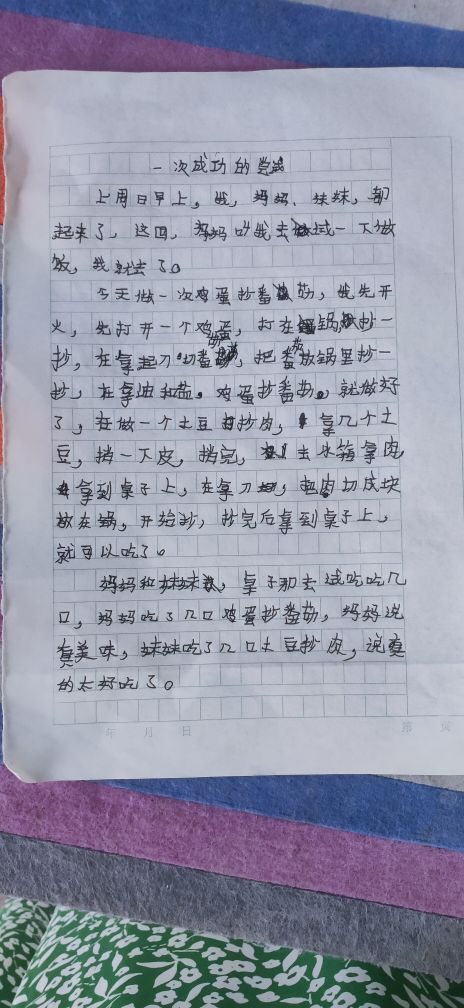 一次成功的尝试
上周日早上，我，妈妈、妹妹，都
起来了，这回，妈妈叫我去试一下做
饭，我就去了。
今天做一次鸡蛋抄番茄，我先开
火，先打开一个鸡蛋，打在锅抄一
抄，在拿起刀切番茄，把番茄放锅里抄一
抄，在拿油和盐。鸡蛋抄番茄。就做好
了，在做一个土豆抄肉，拿几个土
豆，挡一下皮，挡完，去冰箱拿肉，
拿到桌子上，在拿刀切，把肉切成块
放在锅，开始抄，抄完后拿到桌子上，
就可以吃了。
妈妈和妹妹，桌子那去试吃吃几
口，妈妈吃了几口鸡蛋抄番茄，妈妈说
真美味，妹妹吃了几口土豆抄肉，说真
的太好吃了。
年 月 日 第 页